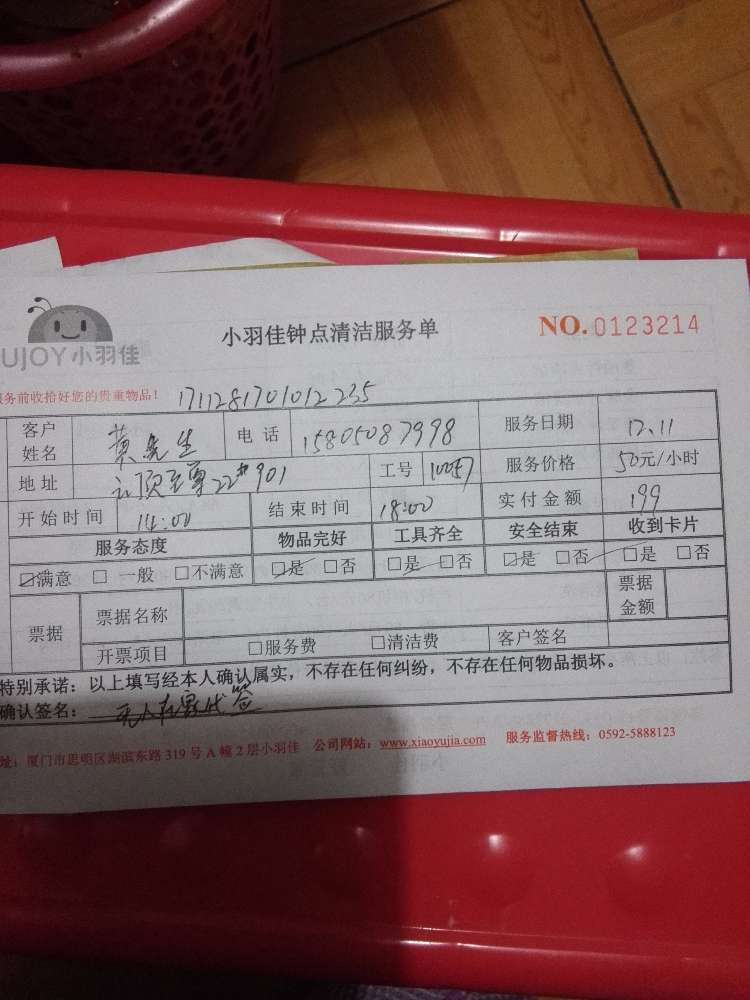 小羽佳钟点清洁服务单
NO.0123214
UJOY小羽佳
务前收拾好您的贵重物品！ 1711281701012235
客户姓名 莫先生 电话 15805087998 服务日期 12.11
地址 22#901 工号 10057 服务价格 50元/小时
开始时间 14:00 结束时间 18:00 实付金额 199
服务态度 物品完好 工具齐全 安全结束 收到卡片
☑满意 □一般 □不满意 ☑是 □否 ☑是 □否 ☑是 □否 ☑是 □否
票据 票据名称 票据金额
开票项目 □服务费 □清洁费 客户签名
特别承诺：以上填写经本人确认属实，不存在任何纠纷，不存在任何物品损坏。
确认签名：无人在家代签
址：厦门市思明区湖滨东路319号A幢2层小羽佳 公司网站：www.xiaoyujia.com 服务监督热线：0592-5888123